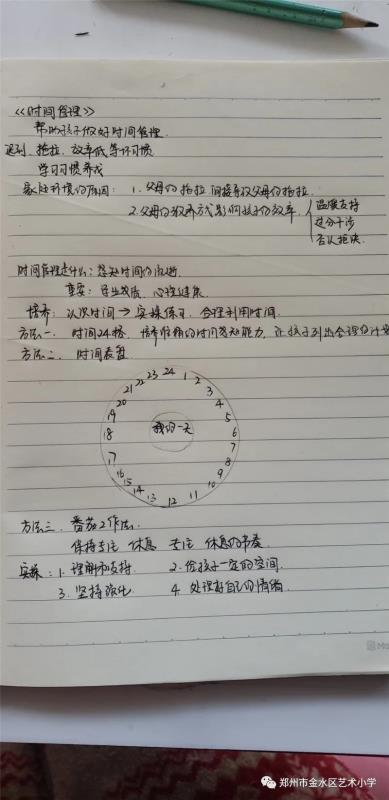 《时间管理》
帮助孩子做好时间管理.
迟到、拖拉、效率低等坏习惯
学习习惯养成
家庭环境的原因: 1.父母的拖拉 间接导致父母的拖拉.
2.父母的教养方式影响孩子的效率
温暖支持
过分干涉
否认拒绝
时间管理是什么:感知时间的流逝
重要: 学业成绩. 心理健康.
培养: 认识时间 → 实操练习. 合理利用时间.
方法一. 时间24格, 培养准确的时间感知能力, 让孩子列出合理的计划
方法二. 时间表盘
24 1 2 3 4 5 6 7 8 9 10 11 12 13 14 15 16 17 18 19 20 21 22 23
我的一天
方法三. 番茄工作法.
保持专注 休息 专注 休息的节奏.
实操: 1.理解和支持. 2.给孩子一定的空间.
3.坚持强化 4.处理好自己的情绪
郑州市金水区艺术小学